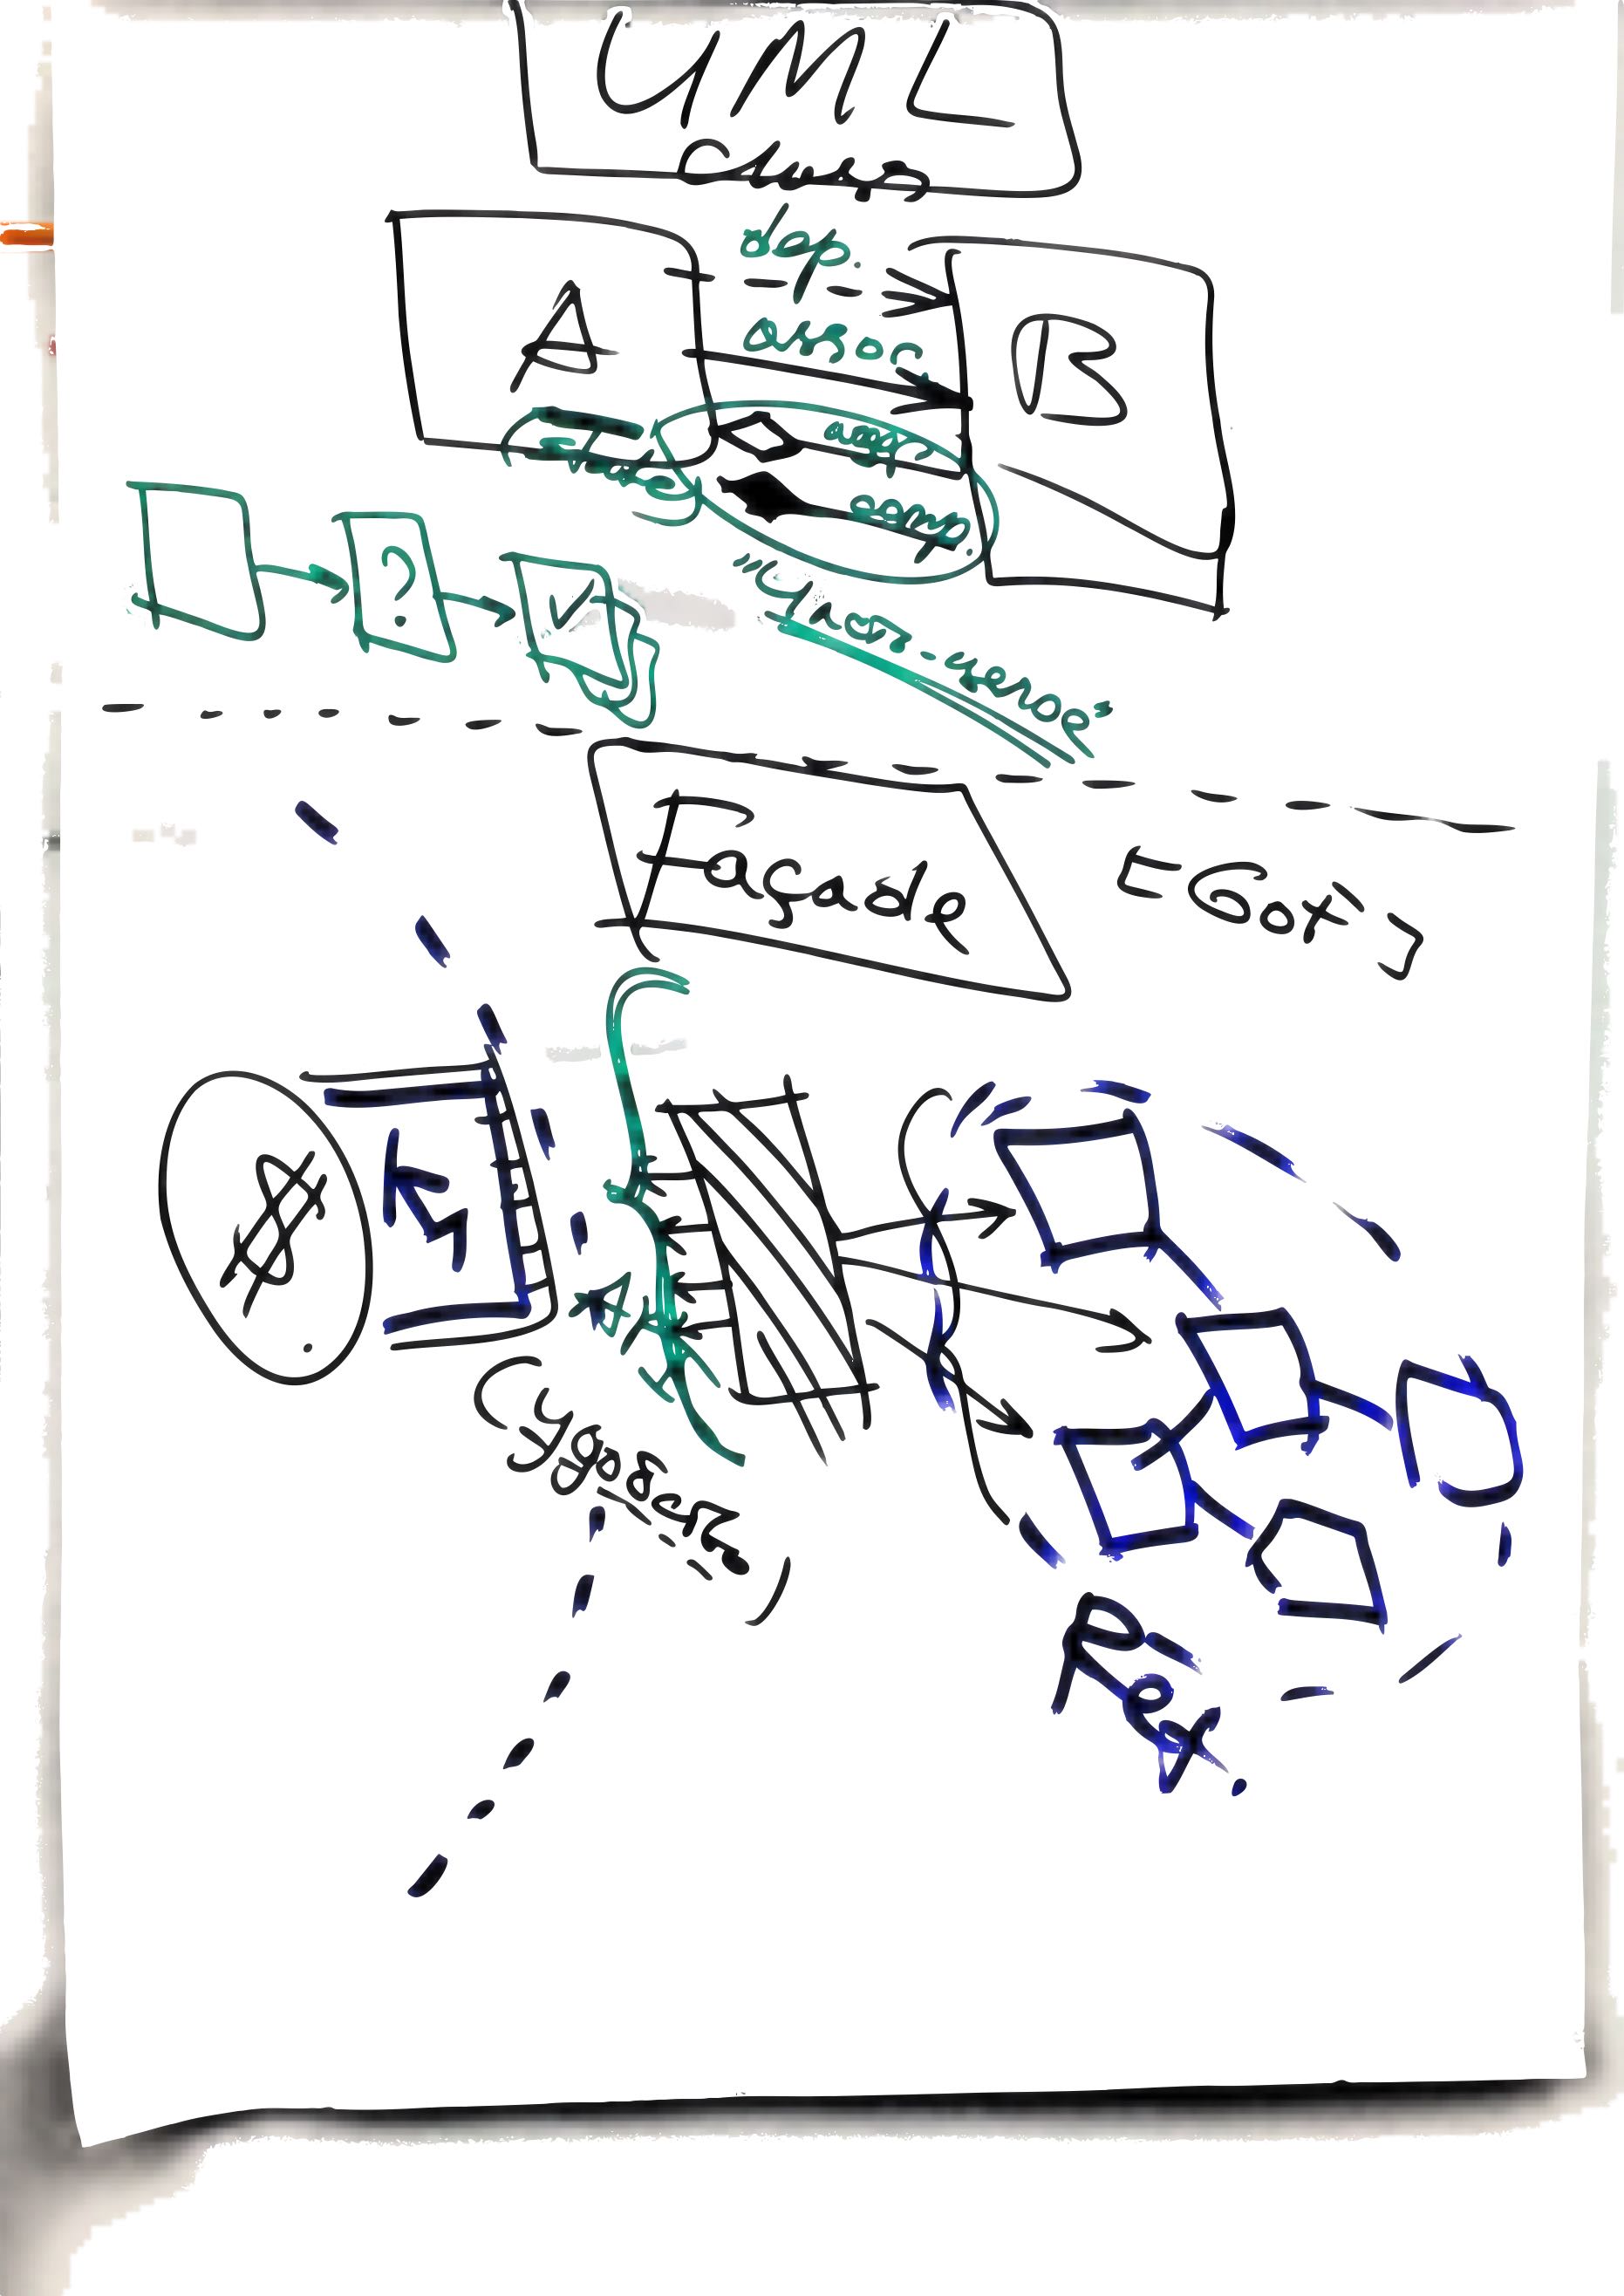 UML
Class
A
dep.
B
assoc.
aggr.
comp.
?
"Часть-целое"
Façade
[GoF]
$
API
(удобство)
Ref.